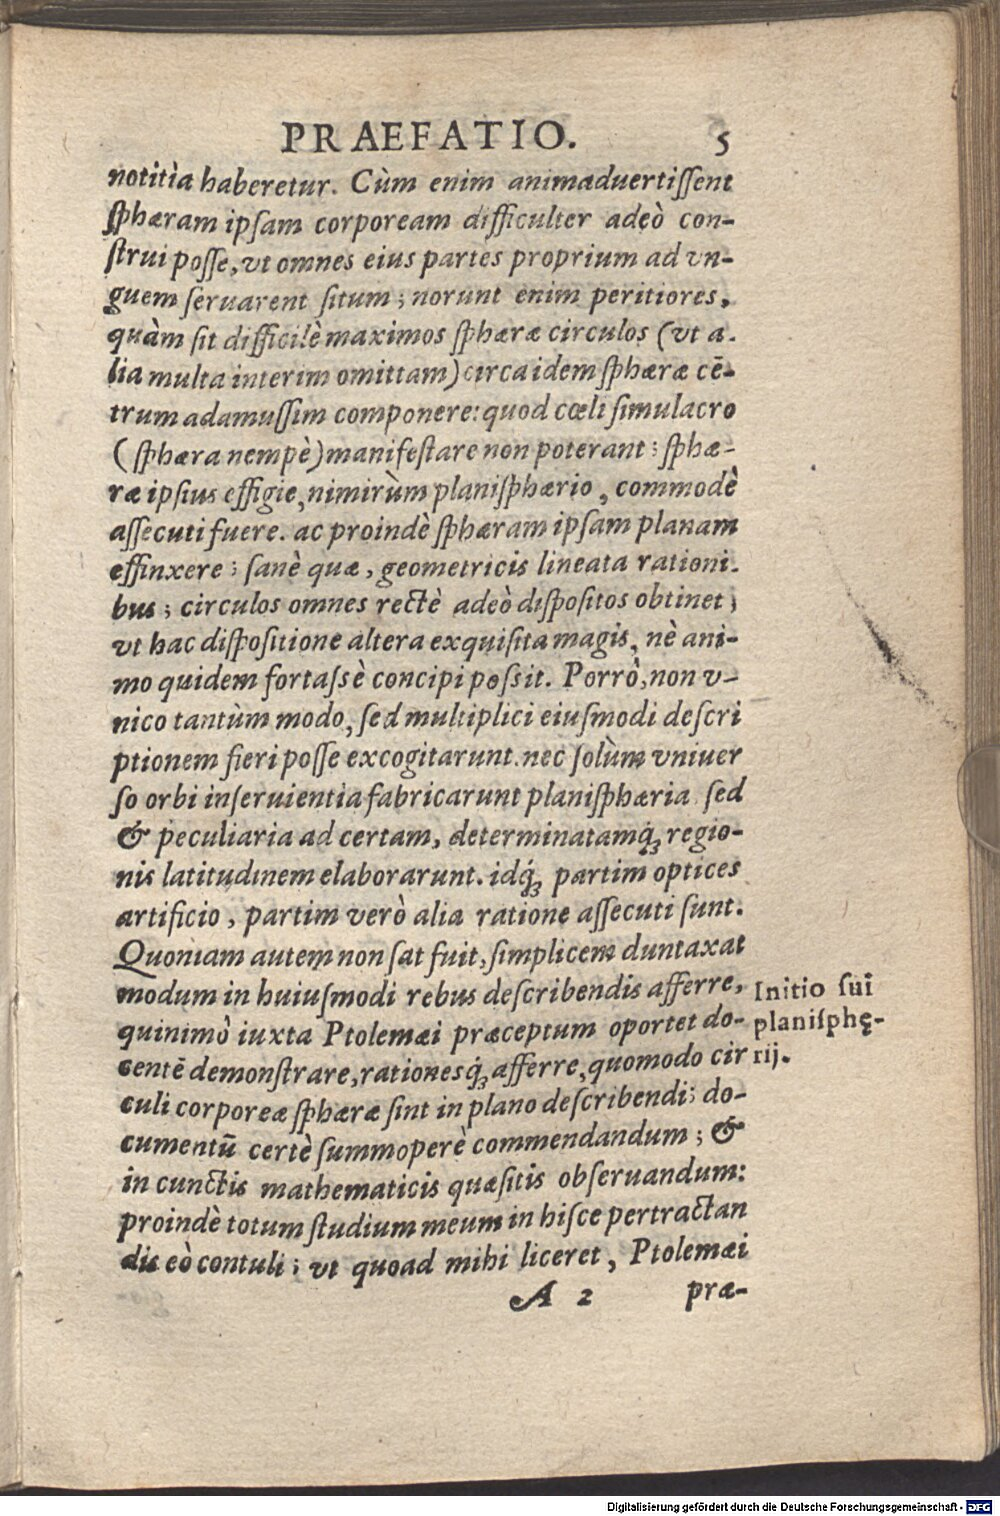 PRAEFATIO. 5
notitia haberetur. Cùm enim animaduertiſſent
ſphæram ipſam corpoream difficulter adeò con-
ſtrui poſſe, vt omnes eius partes proprium ad vn-
guem ſeruarent ſitum; norunt enim peritiores,
quàm ſit difficilè maximos ſphæræ circulos (vt a-
lia multa interim omittam) circa idem ſphæræ cē-
trum adamuſſim componere: quod cœli ſimulacro
(ſphæra nempè) manifeſtare non poterant; ſphæ-
ræ ipſius effigie, nimirùm planiſphærio, commodè
aſſecuti fuere. ac proindè ſphæram ipſam planam
effinxere; ſanè quæ, geometricis lineata rationi-
bus; circulos omnes rectè adeò diſpoſitos obtinet,
vt hac diſpoſitione altera exquiſita magis, nè ani-
mo quidem fortaſsè concipi poſsit. Porrò, non v-
nico tantùm modo, ſed multiplici eiuſmodi deſcri
ptionem fieri poſſe excogitarunt. nec ſolùm vniuer
ſo orbi inſeruientia fabricarunt planiſphæria ſed
& peculiaria ad certam, determinatamq́; regio-
nis latitudinem elaborarunt. idq́; partim optices
artificio, partim verò alia ratione aſſecuti ſunt.
Quoniam autem non ſat fuit, ſimplicem duntaxat
modum in huiuſmodi rebus deſcribendis afferre,
quinimò iuxta Ptolemæi præceptum oportet do-
centē demonſtrare, rationesq́; afferre, quomodo cir
culi corporeæ ſphæræ ſint in plano deſcribendi; do-
cumentū certè ſummoperè commendandum; &
in cunctis mathematicis quæſitis obſeruandum:
proindè totum ſtudium meum in hiſce pertractan
dis eò contuli; vt quoad mihi liceret, Ptolemæi
A 2 præ-
Initio ſui
planiſphę-
rij.
Digitalisierung gefördert durch die Deutsche Forschungsgemeinschaft - DFG